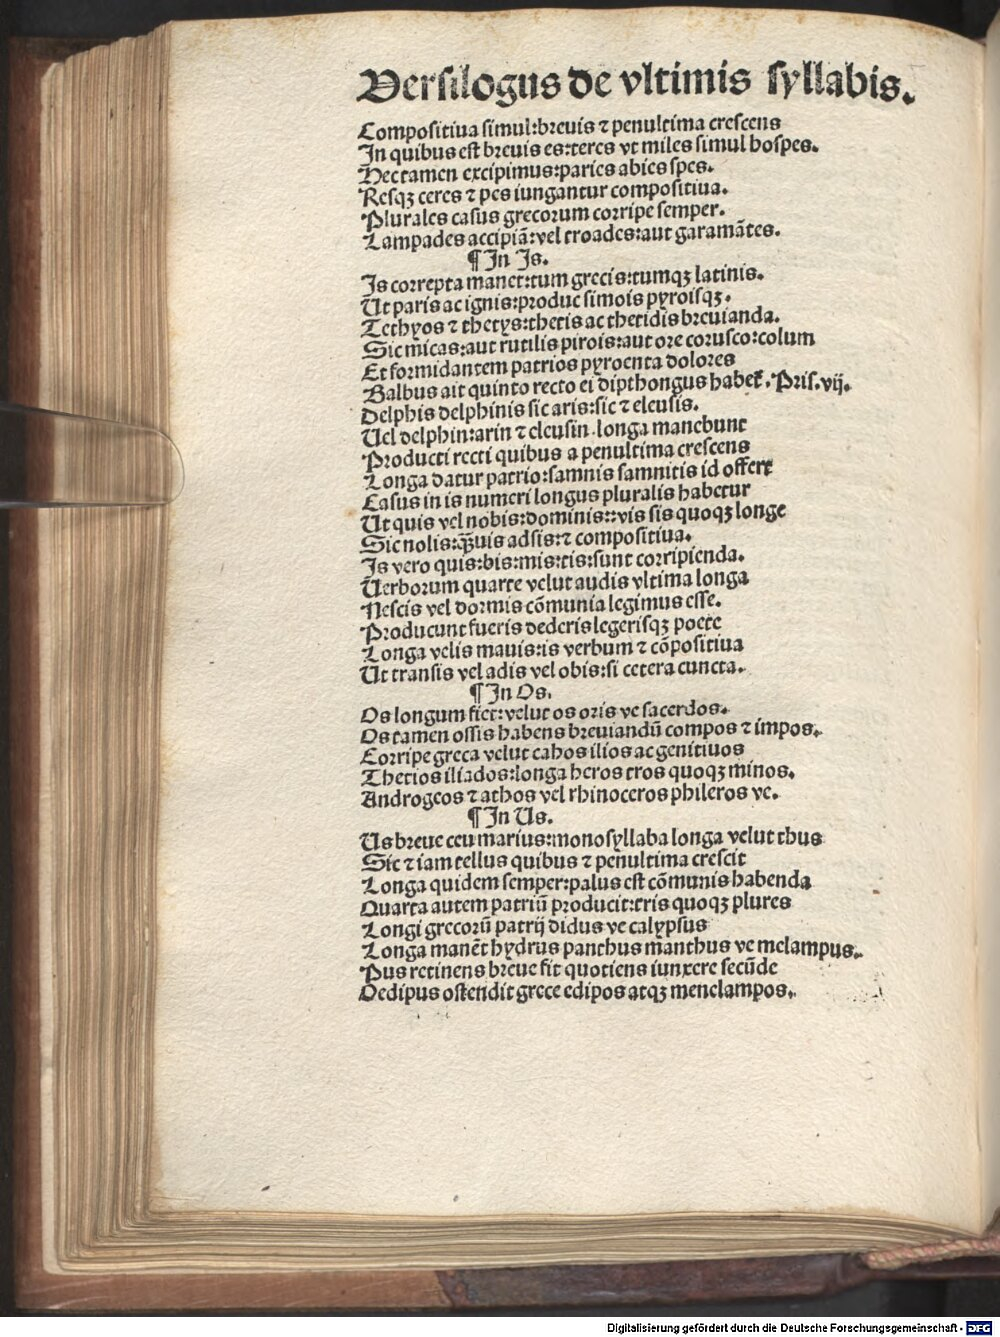 Versilogus de vltimis syllabis.
Compositiua simul:breuis ⁊ penultima crescens
In quibus est breuis es:teres vt miles simul hospes.
Hec tamen excipimus:paries abies spes.
Resqꝫ ceres ⁊ pes iungantur compositiua.
Plurales casus grecorum corripe semper.
Lampades accipiā:vel troades:aut garamātes.
¶ In Is.
Is correpta manet:tum grecis:tumqꝫ latinis.
Ut paris ac ignis:produc simois pyroisqꝫ.
Tethyos ⁊ thetys:thetis ac thetidis breuianda.
Sic micas:aut rutilis pirois:aut ore corusco:colum
Et formidantem patrios pyroenta dolores
Balbus ait quinto recto ei dipthongus habet̄. Pris. vij.
Delphis delphinis sic aris:sic ⁊ eleusis.
Uel delphin:arin ⁊ eleusin longa manebunt
Producti recti quibus a penultima crescens
Longa datur patrio:samnis samnitis id offert
Casus in is numeri longus pluralis habetur
Ut quis vel nobis:dominis::vis sis quoqꝫ longe
Sic nolis:q̄uis adsis:⁊ compositiua.
Is vero quis:bis:mis:tis:sunt corripienda.
Uerborum quarte velut audis vltima longa
Nescis vel dormis cōmunia legimus esse.
Producunt fueris dederis legerisqꝫ poete
Longa velis mauis:is verbum ⁊ cōpositiua
Ut transis vel adis vel obis:si cetera cuncta.
¶ In Os.
Os longum fiet:velut os oris ve sacerdos.
Os tamen ossis habens breuiandū compos ⁊ impos.
Corripe greca velut cahos ilios ac genitiuos
Thetios iliados:longa heros tros quoqꝫ minos.
Androgeos ⁊ athos vel rhinoceros phileros ve.
¶ In Us.
Us breue ceu marius:monosyllaba longa velut thus
Sic ⁊ iam tellus quibus ⁊ penultima crescit
Longa quidem semper:palus est cōmunis habenda
Quarta autem patriū producit:tris quoqꝫ plures
Longi grecorū patrij didus ve calypsus
Longa manēt hydrus panthus manthus ve melampus.
Pus retinens breue fit quotiens iunxere secūde
Oedipus ostendit grece edipos atqꝫ menelampos.
Digitalisierung gefördert durch die Deutsche Forschungsgemeinschaft - DFG